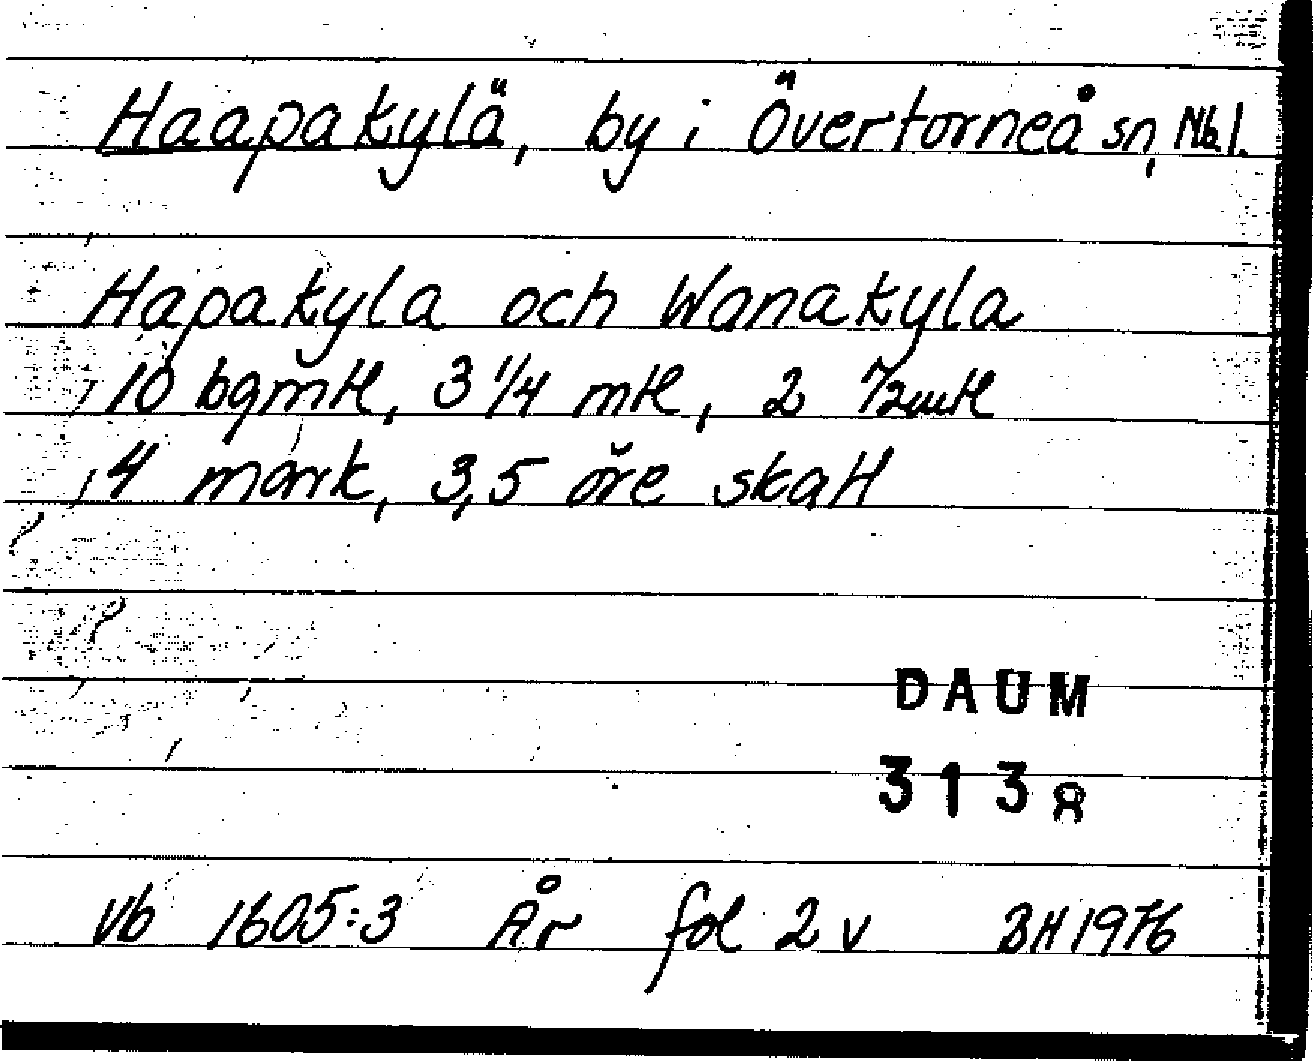 Haapakylä, by i Övertorneå sn, Nbl.
Hapakyla och Wanakyla
10 bgmtl, 3 1/4 mtl, 2 1/2 mtl
4 mark, 3,5 öre skatt
DAUM
3138
Vb 1605:3 År fol 2 v BH 1976